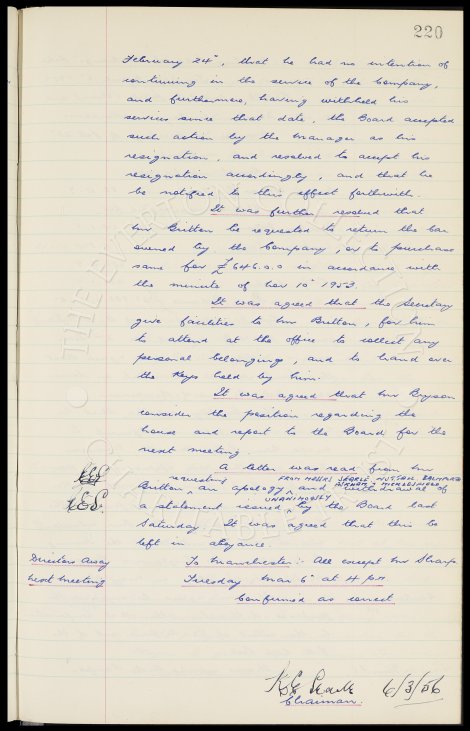 220
February 24th, that he had no intention of
continuing in the service of the Company,
and furthermore, having withheld his
services since that date, the Board accepted
such action by the Manager as his
resignation, and resolved to accept his
resignation accordingly, and that he
be notified to this effect forthwith.
It was further resolved that
Mr Britton be requested to return the car
owned by the Company, or to purchase
same for £646.0.0 in accordance with
the minute of Nov 10th 1953.
It was agreed that the Secretary
give facilities to Mr Britton, for him
to attend at the office to collect any
personal belongings, and to hand over
the keys held by him.
It was agreed that Mr Bryson
consider the position regarding the
house and report to the Board for the
next meeting.
A letter was read from Mr
FROM MESSRS
Britton requesting an apology and withdrawal of
UNANIMOUSLY
a statement issued by the Board last
Saturday. It was agreed that this be
left in abeyance.
Directors Away
next meeting
To Manchester:- All except Mr Sharp.
Tuesday Mar 6th at 4 pm
Confirmed as correct
6/3/56
Chairman.
THE EVERTON COLLECTION